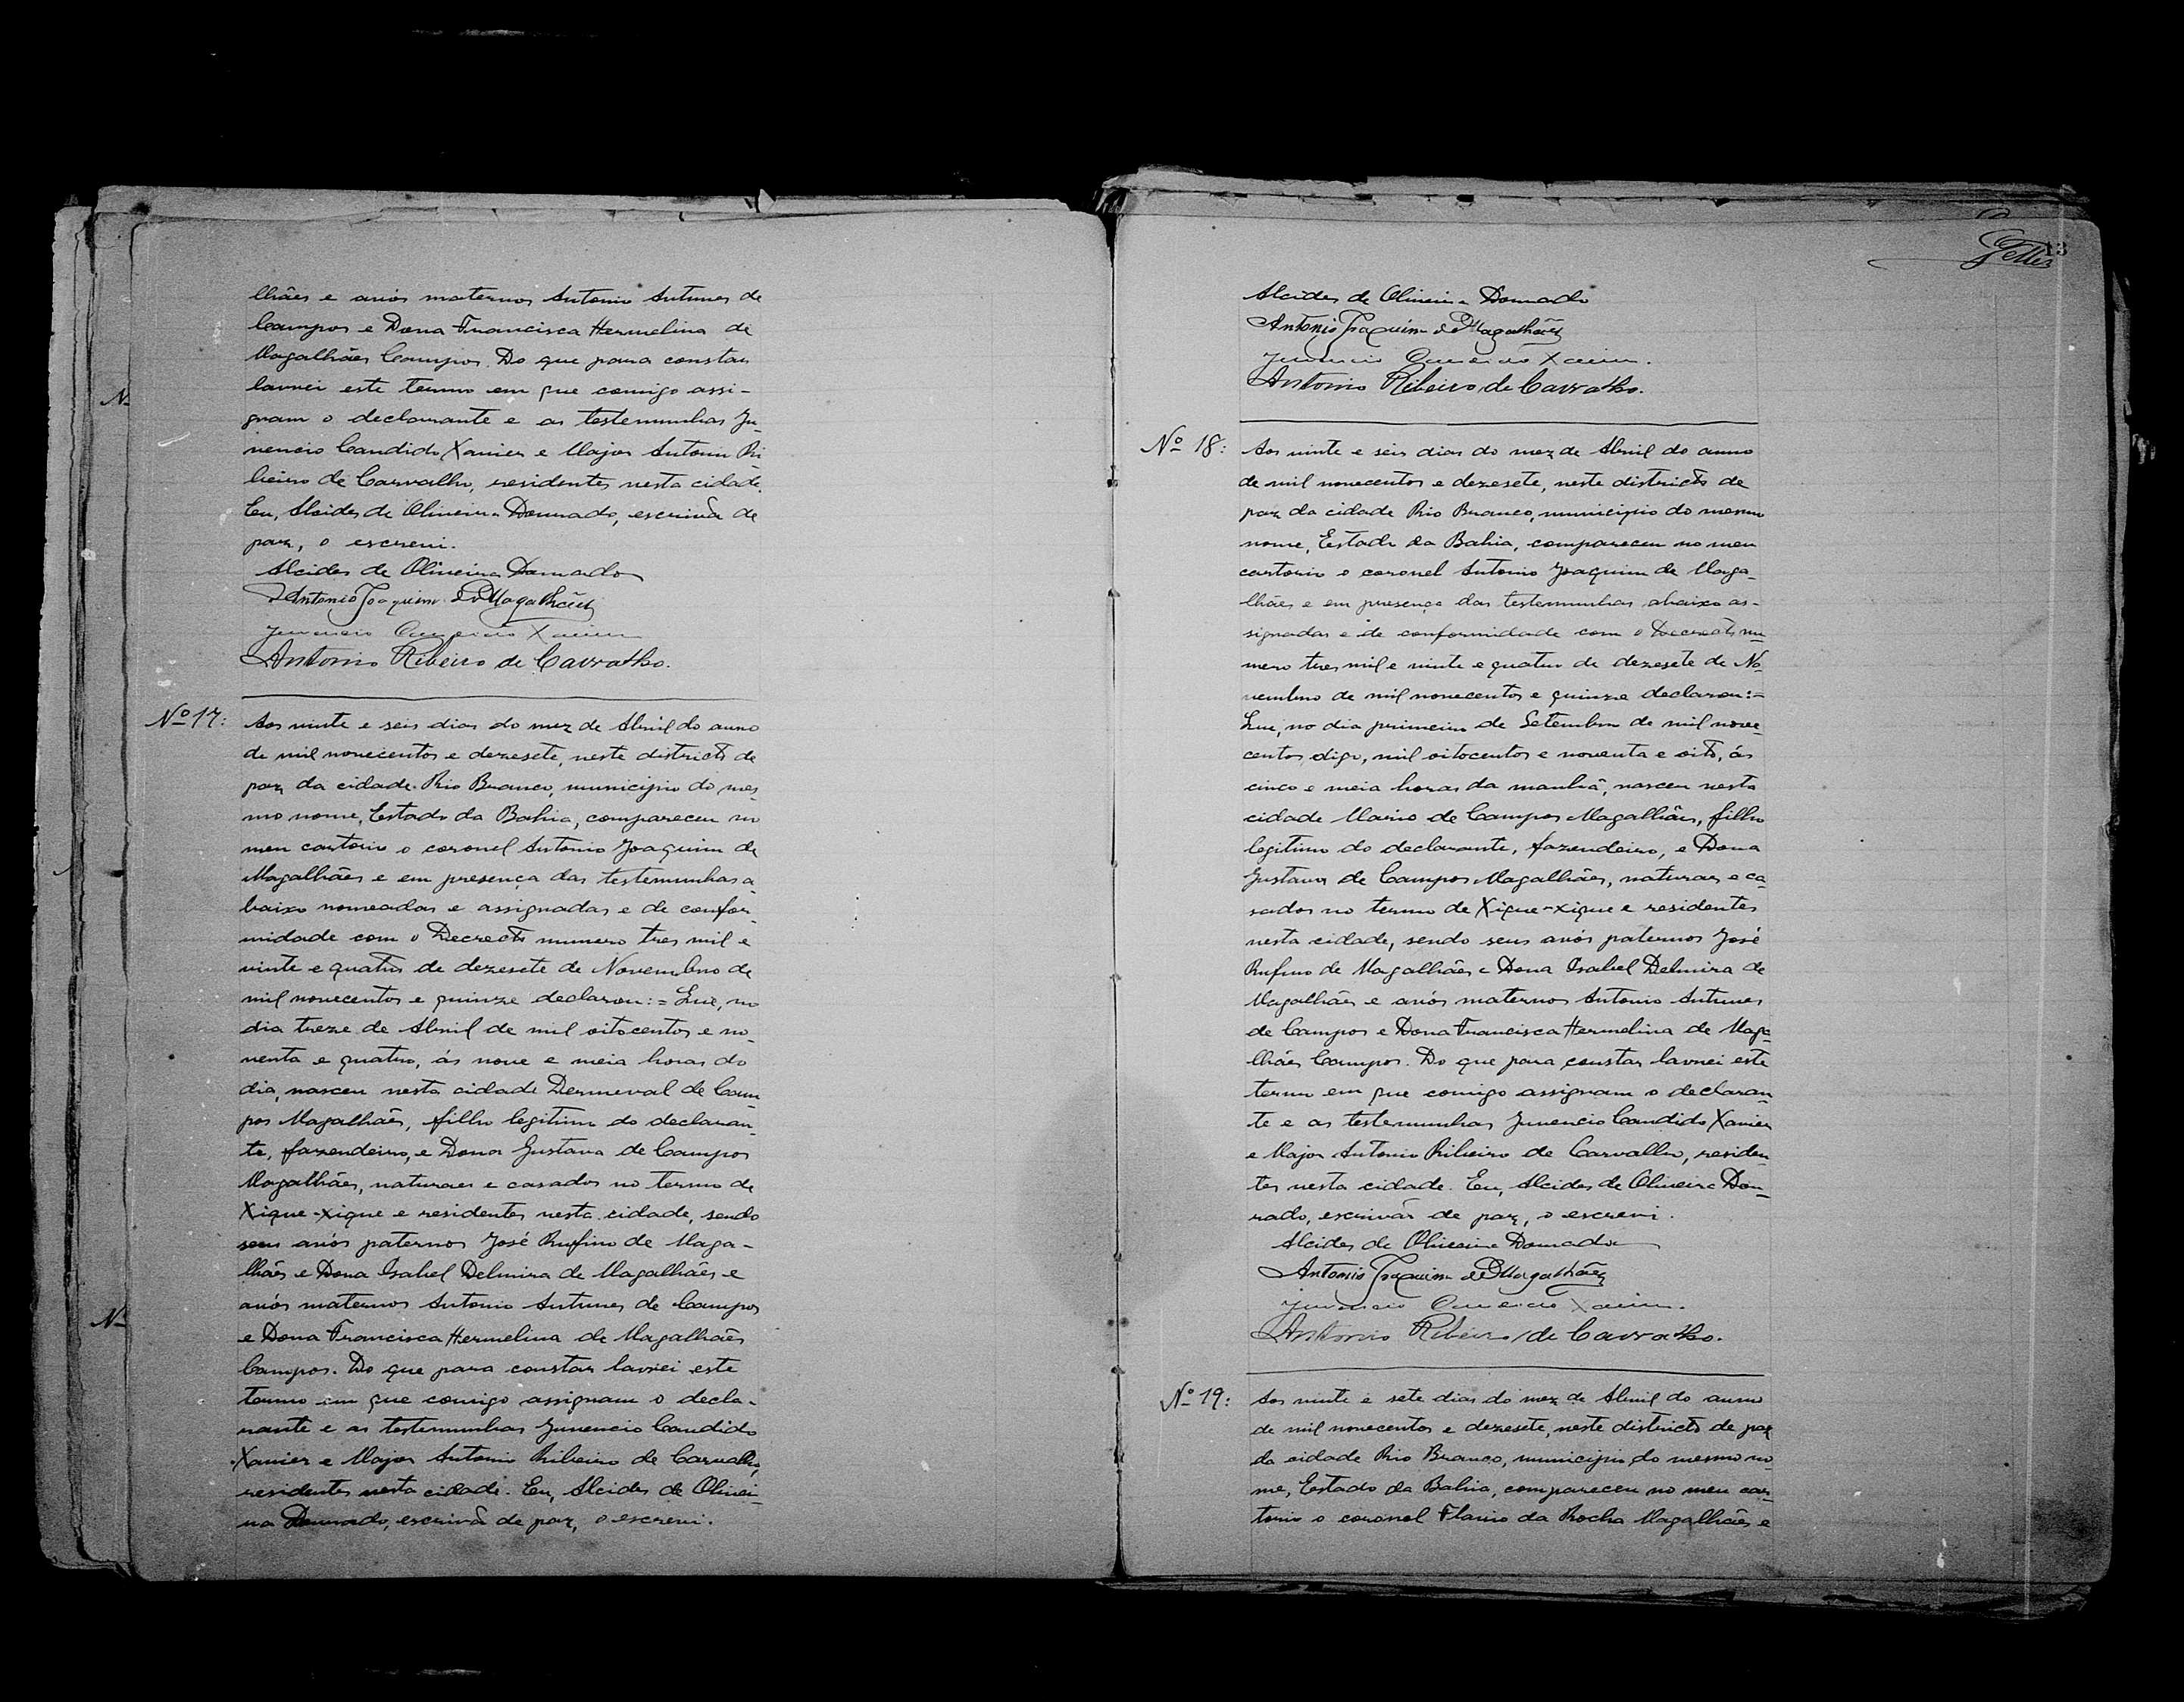 lhães e avós maternos Antonio Antunes de
Campos e Dona Francisca Hermelina de
Magalhães Campos. Do que para constar
lavrei este termo em que comigo assi-
gnam o declarante e as testemunhas Ju-
vencio Candido Xavier e Major Antonio Ri-
beiro de Carvalho, residentes nesta cidade.
Eu, Alcides de Oliveira Dourado, escrivão de
paz, o escrevi.
Alcides de Oliveira Dourado
Antonio Joaquim de Magalhães
Juvencio Candido Xavier
Antonio Ribeiro de Carvalho.
Nº 17:
Aos vinte e seis dias do mez de Abril do anno
de mil novecentos e dezesete, neste districto de
paz da cidade Rio Branco, municipio do mes-
mo nome, Estado da Bahia, compareceu no
meu cartorio o coronel Antonio Joaquim de
Magalhães e em presença das testemunhas a-
baixo nomeadas e assignadas e de confor-
midade com o Decrecto numero tres mil e
vinte e quatro de dezesete de Novembro de
mil novecentos e quinze declarou:= Que, no
dia treze de Abril de mil oitocentos e no-
venta e quatro, ás nove e meia horas do
dia, nasceu nesta cidade Dermeval de Cam-
pos Magalhães, filho legitimo do declaran-
te, fazendeiro, e Dona Gustava de Campos
Magalhães, naturaes e casados no termo de
Xique-xique e residentes nesta cidade, sendo
seus avós paternos José Rufino de Maga-
lhães e Dona Isabel Delmira de Magalhães e
avós maternos Antonio Antunes de Campos
e Dona Francisca Hermelina de Magalhães
Campos. Do que para constar lavrei este
termo em que comigo assignam o decla-
rante e as testemunhas Juvencio Candido
Xavier e Major Antonio Ribeiro de Carvalho,
residentes nesta cidade. Eu, Alcides de Olivei-
ra Dourado, escrivão de paz, o escrevi.
13
Alcides de Oliveira Dourado
Antonio Joaquim de Magalhães
Juvencio Candido Xavier.
Antonio Ribeiro de Carvalho.
Nº 18:
Aos vinte e seis dias do mez de Abril do anno
de mil novecentos e dezesete, neste districto de
paz da cidade Rio Branco, municipio do mesmo
nome, Estado da Bahia, compareceu no meu
cartorio o coronel Antonio Joaquim de Maga-
lhães e em presença das testemunhas abaixo as-
signadas e de conformidade com o Decrecto nu-
mero tres mil e vinte e quatro de dezesete de No-
vembro de mil novecentos e quinze declarou:=
Que, no dia primeiro de Setembro de mil nove-
centos, digo, mil oitocentos e noventa e oito, ás
cinco e meia horas da manhã, nasceu nesta
cidade Mario de Campos Magalhães, filho
legitimo do declarante, fazendeiro, e Dona
Gustava de Campos Magalhães, naturaes e ca-
sados no termo de Xique-xique e residentes
nesta cidade, sendo seus avós paternos José
Rufino de Magalhães e Dona Isabel Delmira de
Magalhães e avós maternos Antonio Antunes
de Campos e Dona Francisca Hermelina de Maga-
lhães Campos. Do que para constar lavrei este
termo em que comigo assignam o declaran-
te e as testemunhas Juvencio Candido Xavier
e Major Antonio Ribeiro de Carvalho, residen-
tes nesta cidade. Eu, Alcides de Oliveira Dou-
rado, escrivão de paz, o escrevi.
Alcides de Oliveira Dourado
Antonio Joaquim de Magalhães
Juvencio Candido Xavier.
Antonio Ribeiro de Carvalho.
Nº 19:
Aos vinte e sete dias do mez de Abril do anno
de mil novecentos e dezesete, neste districto de paz
da cidade Rio Branco, municipio do mesmo no-
me, Estado da Bahia, compareceu no meu car-
torio o coronel Flavio da Rocha Magalhães e